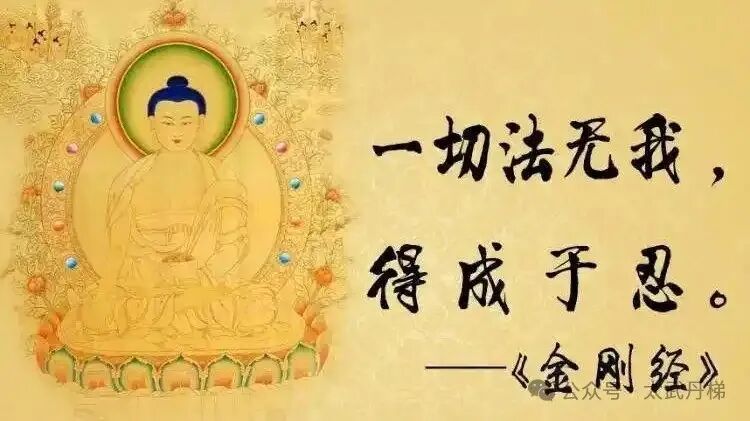 一切法无我，
得成于忍。
——《金刚经》
公众号 太武丹梯